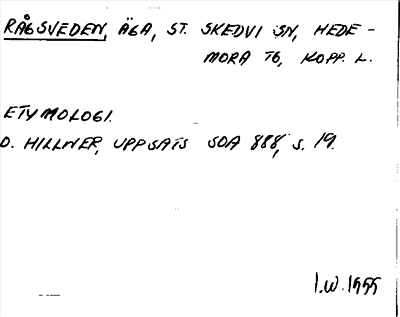 RÅGSVEDEN, ÄGA, ST. SKEDVI SN, HEDE-
MORA TG, KOPP. L.
ETYMOLOGI.
D. HILLNER, UPPSATS SOA 888, S. 19.
I.W. 1999